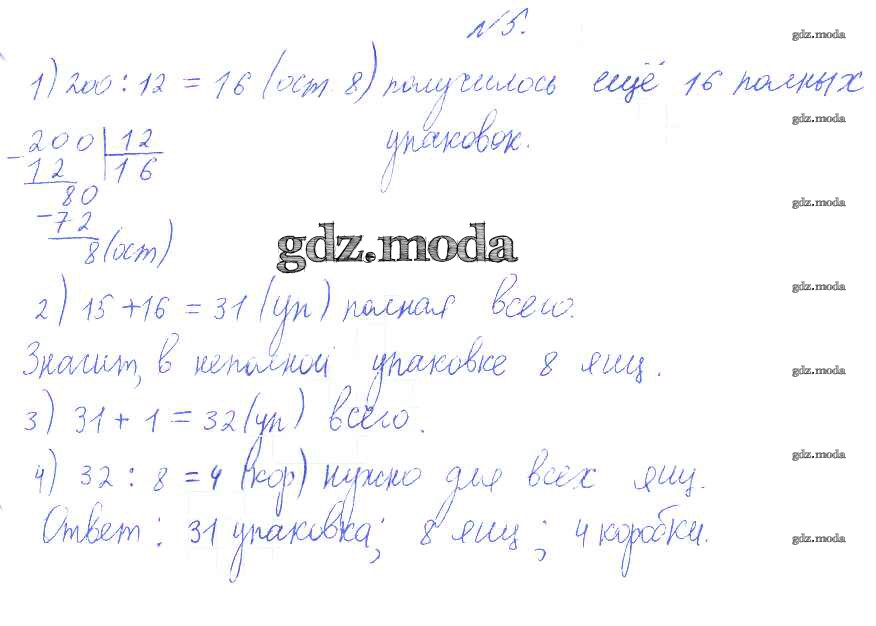 №5.
gdz.moda
1) 200 : 12 = 16 (ост 8) получилось ещё 16 полных
упаковок.
gdz.moda
- 200 | 12
12 | 16
80
- 72
8 (ост)
gdz.moda
gdz.moda
2) 15 + 16 = 31 (уп) полная всего.
gdz.moda
Значит, в неполной упаковке 8 яиц.
gdz.moda
3) 31 + 1 = 32 (уп) всего.
4) 32 : 8 = 4 (кор) нужно для всех яиц.
gdz.moda
Ответ: 31 упаковка; 8 яиц; 4 коробки.
gdz.moda